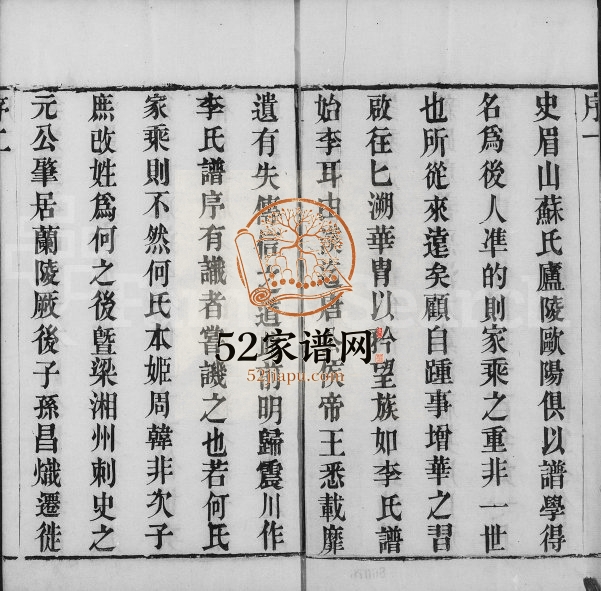 序一
史眉山蘇氏廬陵歐陽俱以譜學得
名為後人準的則家乘之重非一世
也所從來遠矣顧自踵事增華之習
啟往匕溯華胄以矜望族如李氏譜
始李耳由漢迄唐 侯帝王悉載靡
遺有失傳信之道 前明歸震川作
李氏譜序有識者嘗譏之也若何氏
家乘則不然何氏本姬周韓非次子
庶改姓為何之後暨梁湘州刺史之
元公肇居蘭陵厥後子孫昌熾遷徙
序二
52家谱网
52jiapu.com